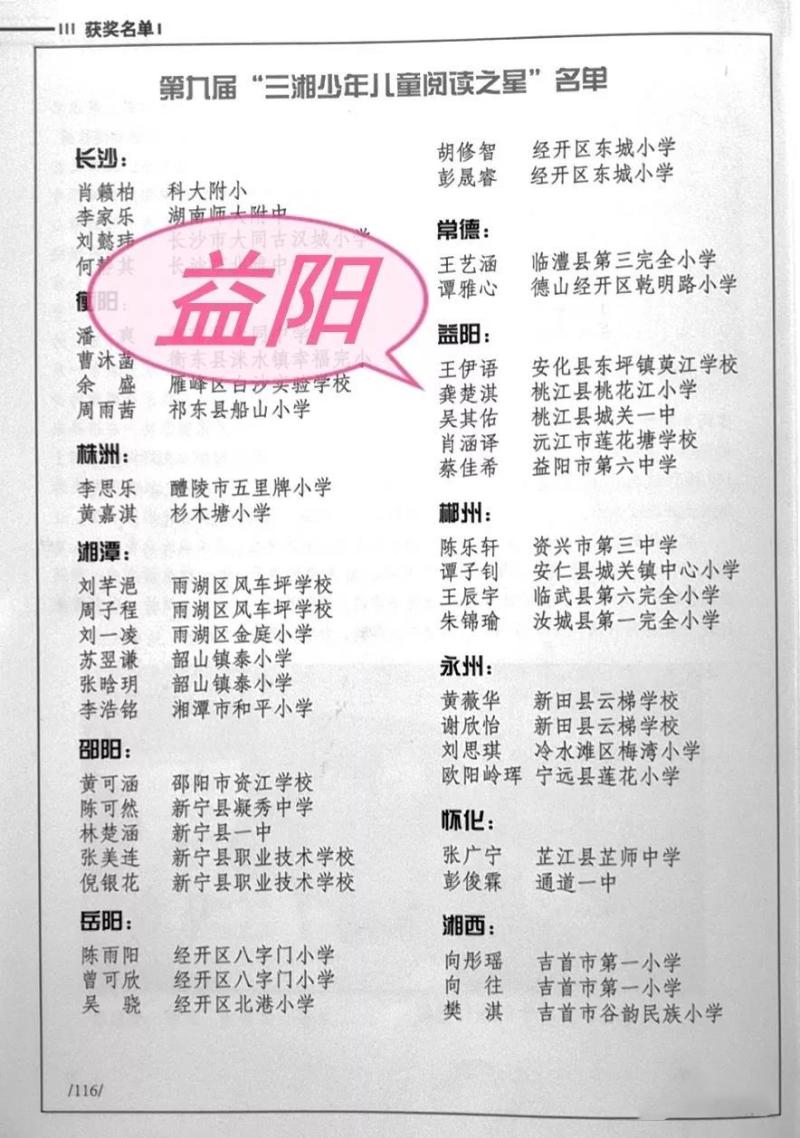 III 获奖名单 I
第九届“三湘少年儿童阅读之星”名单
长沙：
肖籁柏 科大附小
李家乐 湖南师大附中
刘懿玮 长沙市大同古汉城小学
何 其 长沙
益阳
衡阳：
潘 爽
曹沐菡 衡东县洣水镇幸福完小
余 盛 雁峰区白沙实验学校
周雨茜 祁东县船山小学
株洲：
李思乐 醴陵市五里牌小学
黄嘉淇 杉木塘小学
湘潭：
刘芊浥 雨湖区风车坪学校
周子程 雨湖区风车坪学校
刘一凌 雨湖区金庭小学
苏翌谦 韶山镇泰小学
张晗玥 韶山镇泰小学
李浩铭 湘潭市和平小学
邵阳：
黄可涵 邵阳市资江学校
陈可然 新宁县凝秀中学
林楚涵 新宁县一中
张美连 新宁县职业技术学校
倪银花 新宁县职业技术学校
岳阳：
陈雨阳 经开区八字门小学
曾可欣 经开区八字门小学
吴 骁 经开区北港小学
胡修智 经开区东城小学
彭晟睿 经开区东城小学
常德：
王艺涵 临澧县第三完全小学
谭雅心 德山经开区乾明路小学
益阳：
王伊语 安化县东坪镇萸江学校
龚楚淇 桃江县桃花江小学
吴其佑 桃江县城关一中
肖涵译 沅江市莲花塘学校
蔡佳希 益阳市第六中学
郴州：
陈乐轩 资兴市第三中学
谭子钊 安仁县城关镇中心小学
王辰宇 临武县第六完全小学
朱锦瑜 汝城县第一完全小学
永州：
黄薇华 新田县云梯学校
谢欣怡 新田县云梯学校
刘思琪 冷水滩区梅湾小学
欧阳岭珲 宁远县莲花小学
怀化：
张广宁 芷江县芷师中学
彭俊霖 通道一中
湘西：
向彤瑶 吉首市第一小学
向 往 吉首市第一小学
樊 淇 吉首市谷韵民族小学
/116/